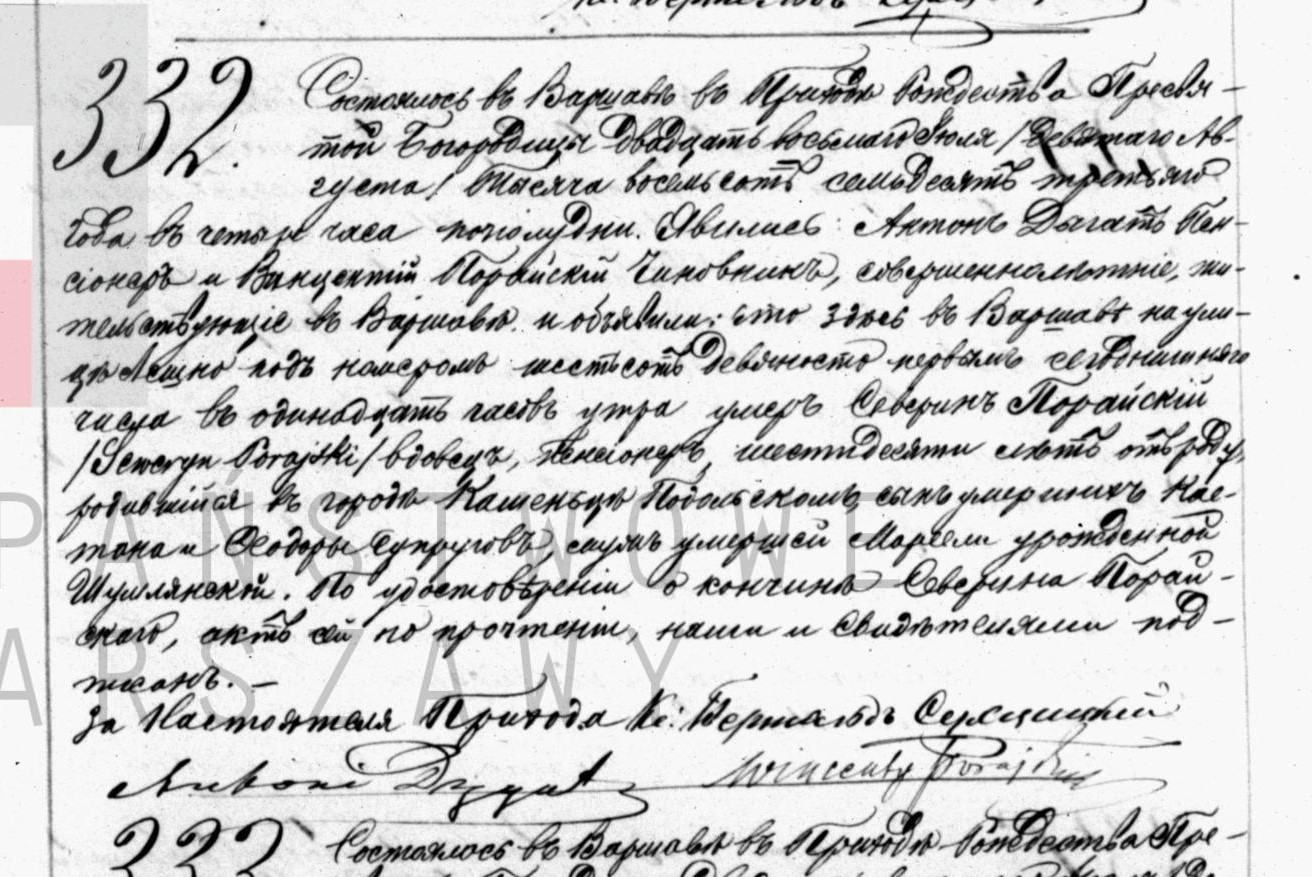 332. Состоялось въ Варшавѣ въ Приходѣ Рождества Пресвя-
той Богородицы двадцать восьмаго Іюля /девятаго Ав-
густа/ тысяча восемьсотъ семьдесятъ третьяго
года въ четыре часа пополудни. Явились: Антонъ Дыгатъ Пен-
сіонеръ и Винцентій Порайскій Чиновникъ, совершеннолѣтніе, жи-
тельствующіе въ Варшавѣ и объявили: что здѣсь въ Варшавѣ на ули-
цѣ Лешно подъ номеромъ шестьсотъ девяносто первымъ сегоднишняго
числа въ одинадцать часовъ утра умеръ Северинъ Порайскій
/Seweryn Porajski/ вдовецъ, Пенсіонеръ, шестидесяти лѣтъ отъ роду,
родившійся въ городѣ Каменьцѣ Подольскомъ, сынъ умершихъ Кае-
тана и Ѳеодоры супруговъ, мужъ умершей Марсели урожденной
Шумлянской. По удостовѣреніи о кончинѣ Северина Порай-
скаго, актъ сей по прочтеніи, нами и свидѣтелями под-
писанъ. —
За Настоятеля Прихода Кс:
Antoni Dygat Wincenty Porajski
333 Состоялось въ Варшавѣ въ Приходѣ Рождества Пре-
PAŃSTWOWE
WARSZAWY